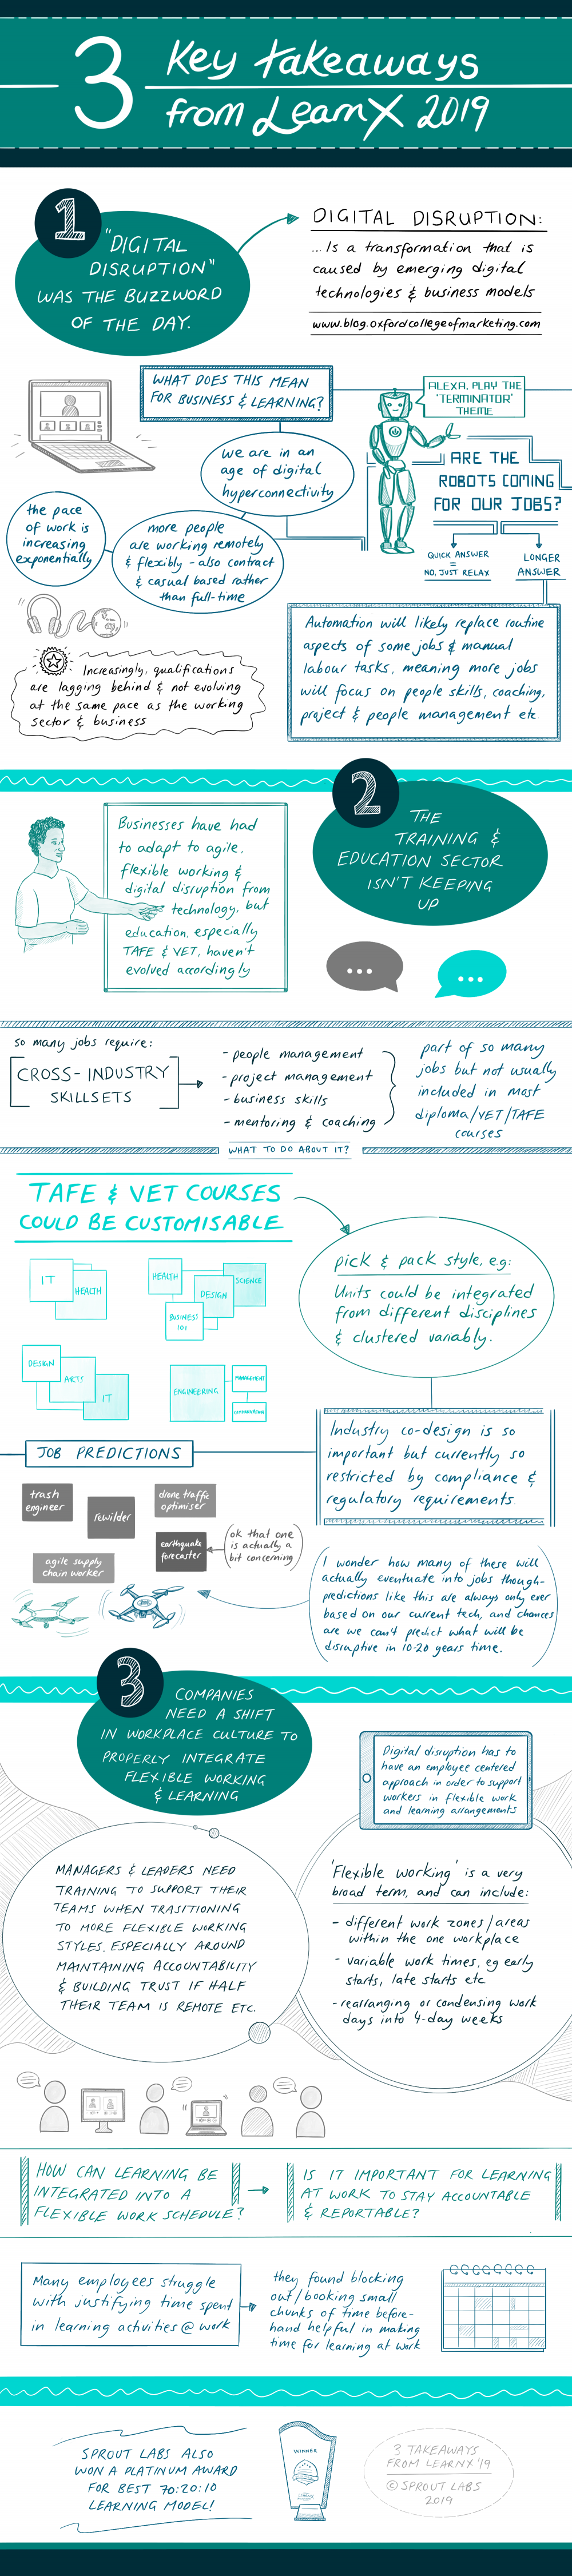 3 Key takeaways
from LearnX 2019
1
"DIGITAL
DISRUPTION"
WAS THE BUZZWORD
OF THE DAY.
DIGITAL DISRUPTION:
...Is a transformation that is
caused by emerging digital
technologies & business models
www.blog.oxfordcollegeofmarketing.com
WHAT DOES THIS MEAN
FOR BUSINESS & LEARNING?
ALEXA, PLAY THE
'TERMINATOR'
THEME
we are in an
age of digital
hyperconnectivity
ARE THE
ROBOTS COMING
FOR OUR JOBS?
the pace
of work is
increasing
exponentially
more people
are working remotely
& flexibly - also contract
& casual based rather
than full-time
QUICK ANSWER
=
NO, JUST RELAX
LONGER
ANSWER
Automation will likely replace routine
aspects of some jobs & manual
labour tasks, meaning more jobs
will focus on people skills, coaching,
project & people management etc
Increasingly, qualifications
are lagging behind & not evolving
at the same pace as the working
sector & business
2
THE
TRAINING &
EDUCATION SECTOR
ISN'T KEEPING
UP
Businesses have had
to adapt to agile,
flexible working &
digital disruption from
technology, but
education, especially
TAFE & VET, haven't
evolved accordingly
so many jobs require:
CROSS-INDUSTRY
SKILLSETS
- people management
- project management
- business skills
- mentoring & coaching
part of so many
jobs but not usually
included in most
diploma/VET/TAFE
courses
WHAT TO DO ABOUT IT?
TAFE & VET COURSES
COULD BE CUSTOMISABLE
pick & pack style, e.g:
Units could be integrated
from different disciplines
& clustered variably.
IT
HEALTH
HEALTH
SCIENCE
DESIGN
BUSINESS
101
DESIGN
ARTS
IT
ENGINEERING
MANAGEMENT
COMMUNICATIONS
Industry co-design is so
important but currently so
restricted by compliance &
regulatory requirements.
JOB PREDICTIONS
trash
engineer
rewilder
drone traffic
optimiser
earthquake
forecaster
agile supply
chain worker
ok that one
is actually a
bit concerning
I wonder how many of these will
actually eventuate into jobs though-
predictions like this are always only ever
based on our current tech, and chances
are we can't predict what will be
disruptive in 10-20 years time.
3
COMPANIES
NEED A SHIFT
IN WORKPLACE CULTURE TO
PROPERLY INTEGRATE
FLEXIBLE WORKING
& LEARNING
Digital disruption has to
have an employee centered
approach in order to support
workers in flexible work
and learning arrangements
MANAGERS & LEADERS NEED
TRAINING TO SUPPORT THEIR
TEAMS WHEN TRASITIONING
TO MORE FLEXIBLE WORKING
STYLES. ESPECIALLY AROUND
MAINTAINING ACCOUNTABILITY
& BUILDING TRUST IF HALF
THEIR TEAM IS REMOTE ETC.
'Flexible working' is a very
broad term, and can include:
- different work zones/areas
within the one workplace
- variable work times, eg early
starts, late starts etc
- rearranging or condensing work
days into 4-day weeks
HOW CAN LEARNING BE
INTEGRATED INTO A
FLEXIBLE WORK SCHEDULE?
IS IT IMPORTANT FOR LEARNING
AT WORK TO STAY ACCOUNTABLE
& REPORTABLE?
Many employees struggle
with justifying time spent
in learning activities @ work
they found blocking
out/booking small
chunks of time before-
hand helpful in making
time for learning at work
SPROUT LABS ALSO
WON A PLATINUM AWARD
FOR BEST 70:20:10
LEARNING MODEL!
WINNER
3 TAKEAWAYS
FROM LEARNX '19
© SPROUT LABS
2019